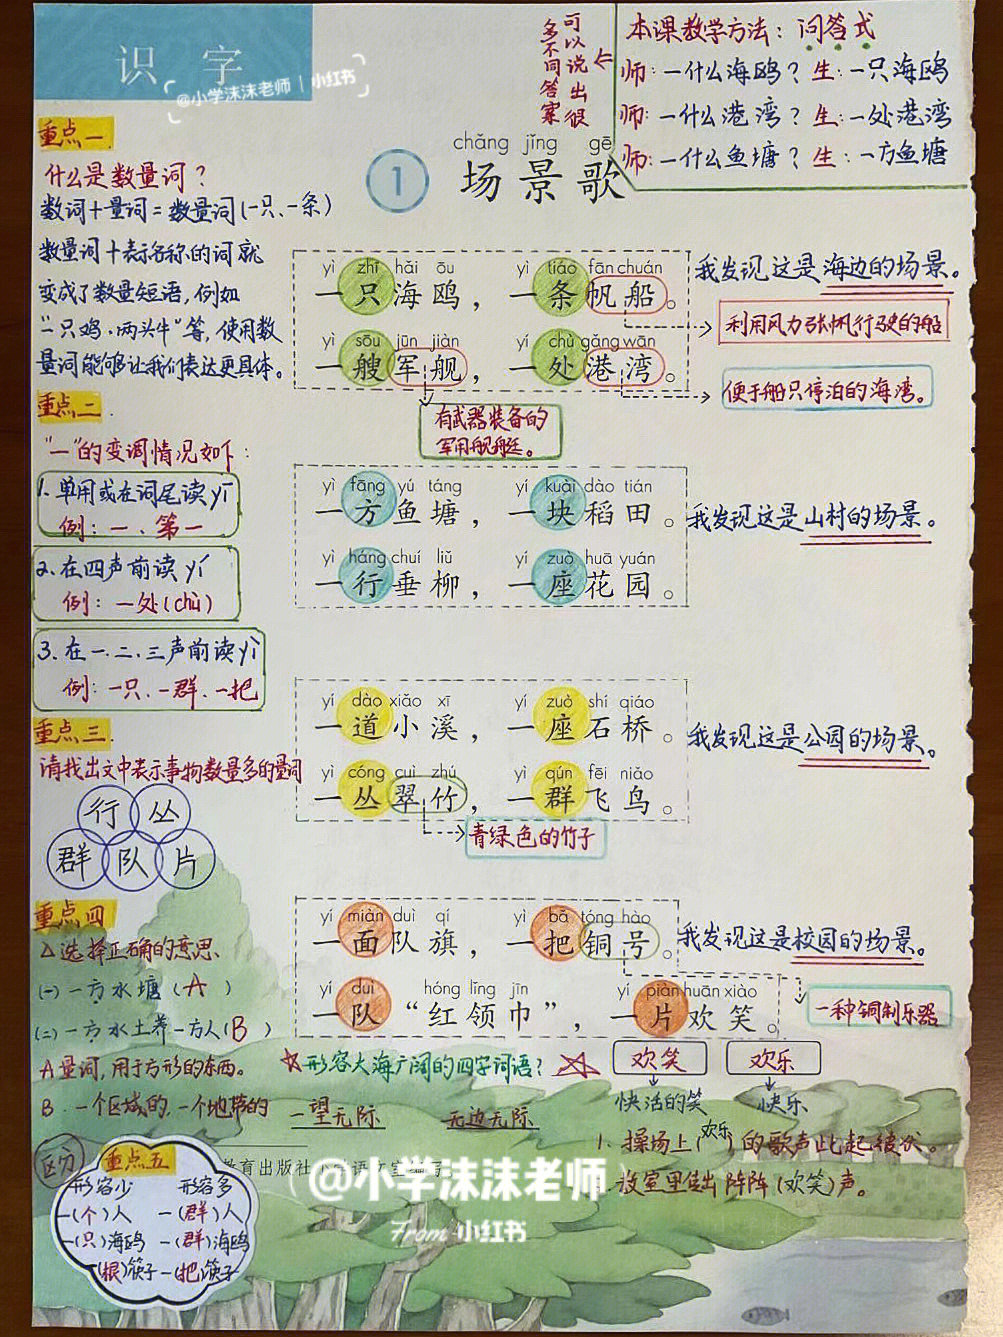 识字
@小学沫沫老师 | 小红书
可以说出很
多不同答案
本课教学方法：问答式
师：一什么海鸥？生：一只海鸥
师：一什么港湾？生：一处港湾
师：一什么鱼塘？生：一方鱼塘
重点一
什么是数量词？
数词＋量词＝数量词(一只、一条)
数量词＋表示名称的词就
变成了数量短语，例如
“一只鸡、两头牛”等，使用数
量词能够让我们表达更具体。
chǎng jǐng gē
1 场景歌
yì zhī hǎi ōu yì tiáo fān chuán
一只海鸥，一条帆船。
我发现这是海边的场景。
利用风力张帆行驶的船
yì sōu jūn jiàn yí chù gǎng wān
一艘军舰，一处港湾。
便于船只停泊的海湾。
有武器装备的
军用舰艇。
重点二
“一”的变调情况如下：
1. 单用或在词尾读yī
例：一、第一
2. 在四声前读yí
例：一处(chù)
3. 在一、二、三声前读yì
例：一只、一群、一把
yì fāng yú táng yí kuài dào tián
一方鱼塘，一块稻田。
我发现这是山村的场景。
yì háng chuí liǔ yí zuò huā yuán
一行垂柳，一座花园。
重点三
请找出文中表示事物数量多的量词
行 丛
群 队 片
yí dào xiǎo xī yí zuò shí qiáo
一道小溪，一座石桥。
我发现这是公园的场景。
yí cóng cuì zhú yì qún fēi niǎo
一丛翠竹，一群飞鸟。
青绿色的竹子
重点四
△选择正确的意思
(一) 一方水塘 (A)
(二) 一方水土养一方人(B)
A 量词，用于方形的东西。
B. 一个区域的，一个地带的
yí miàn duì qí yì bǎ tóng hào
一面队旗，一把铜号。
我发现这是校园的场景。
一种铜制乐器
yí duì hóng lǐng jīn yí piàn huān xiào
一队“红领巾”，一片欢笑。
☆形容大海广阔的四字词语？☆
一望无际 无边无际
欢笑 欢乐
快活的笑 快乐
1. 操场上(欢乐)的歌声此起彼伏。
教室里传出阵阵(欢笑)声。
区分
重点五
形容少 形容多
一(个)人 一(群)人
一(只)海鸥 一(群)海鸥
一(根)筷子 一(把)筷子
教育出版社
@小学沫沫老师
From 小红书